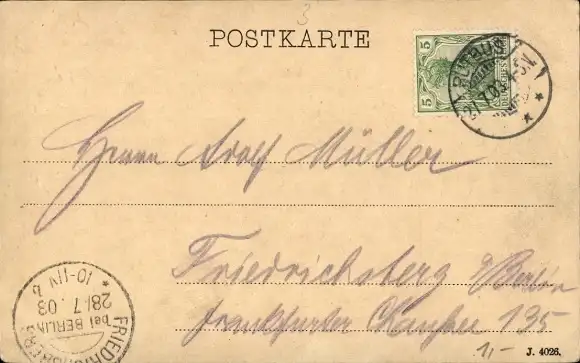 3
POSTKARTE
5 5
PUTBUS
27.7.03. 4-5N.
Herrn Adolf Müller
Friedrichsberg b/Berlin
Frankfurter Chaussee 135
FRIEDRICHSBERG
bei BERLIN
28.7.03
10-11V b
1-
J. 4026.